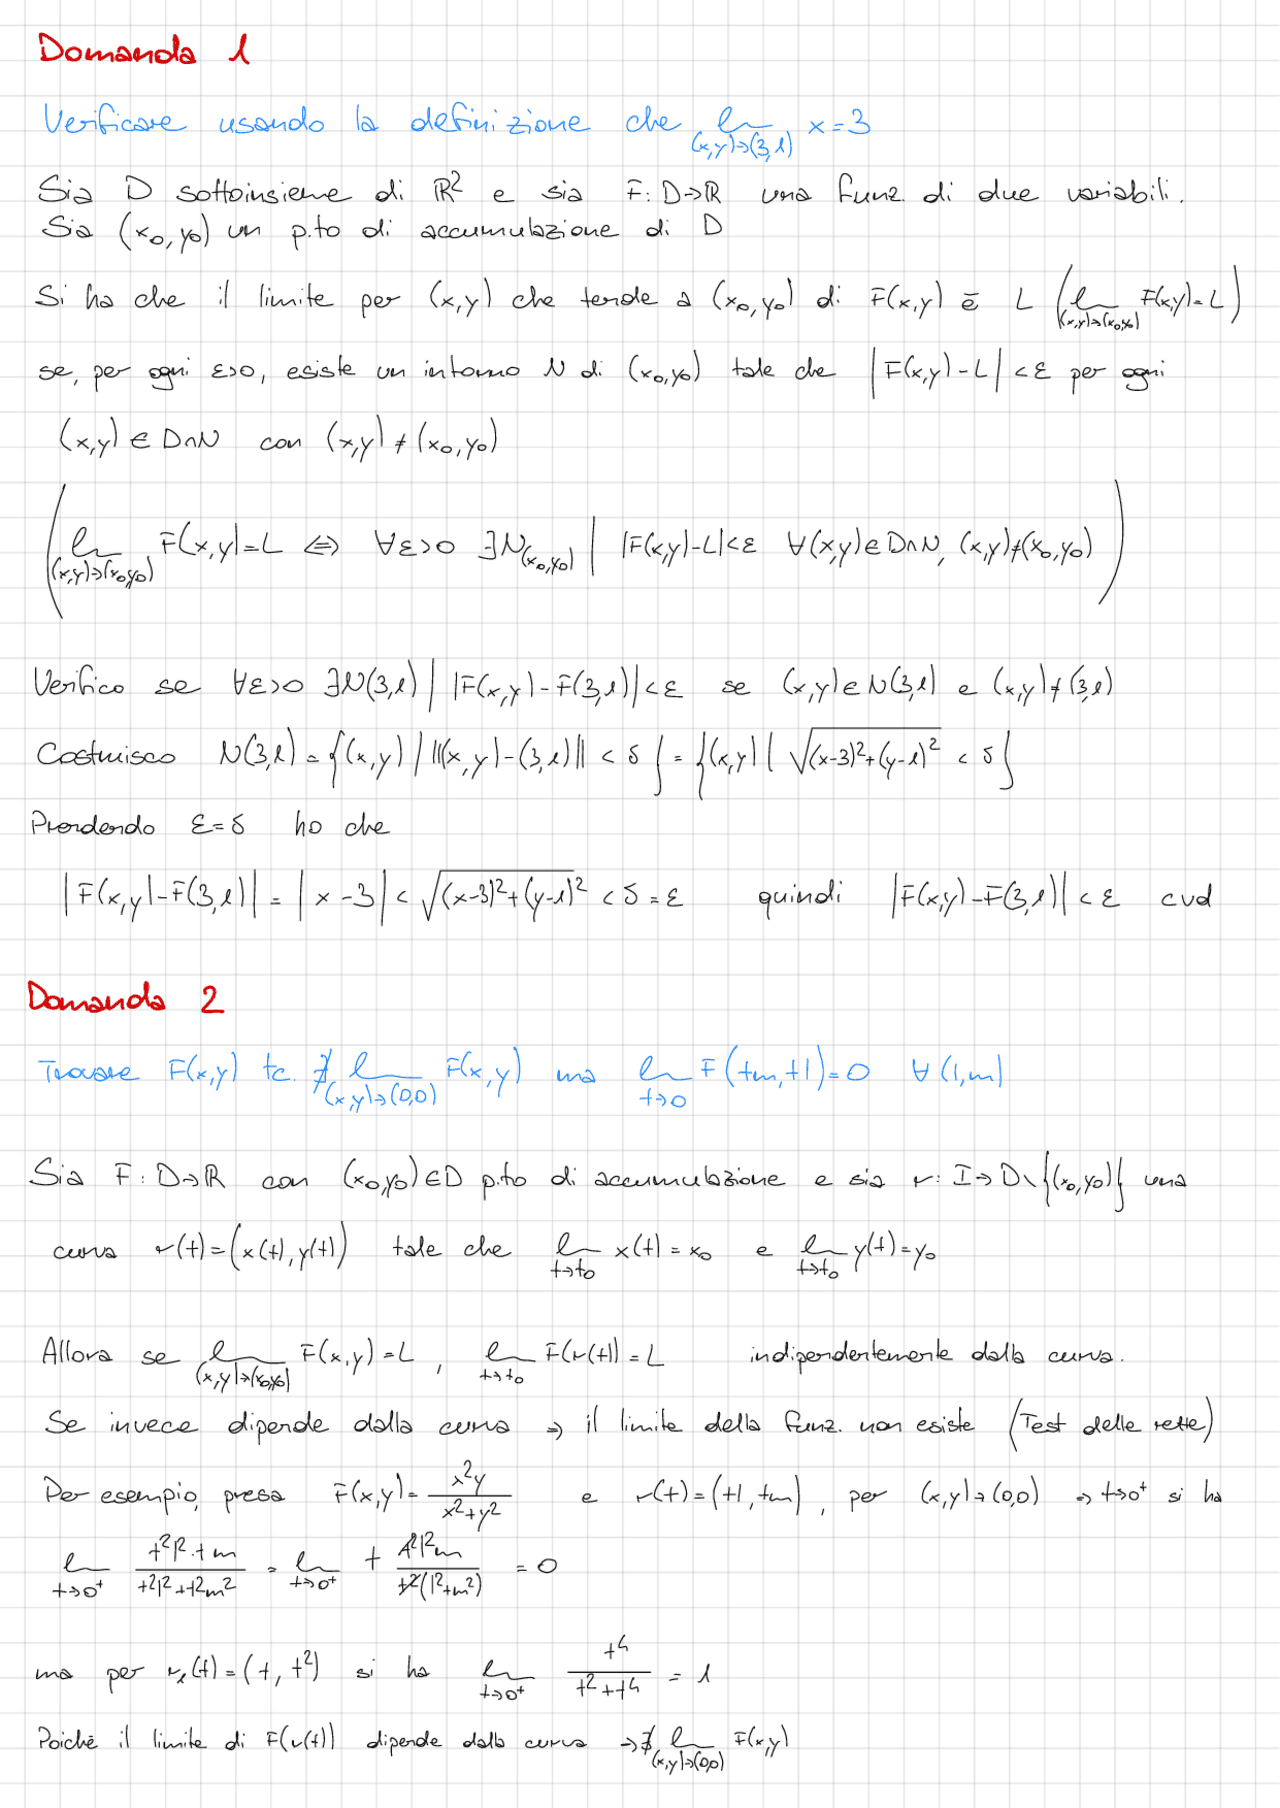 Domanda 1
Verificare usando la definizione che lim_{(x,y)→(3,1)} x=3
Sia D sottoinsieme di ℝ² e sia F: D→ℝ una funz. di due variabili.
Sia (x₀,y₀) un p.to di accumulazione di D
Si ha che il limite per (x,y) che tende a (x₀,y₀) di F(x,y) è L (lim_{(x,y)→(x₀,y₀)} F(x,y)=L)
se, per ogni ε>0, esiste un intorno N di (x₀,y₀) tale che |F(x,y)-L|<ε per ogni
(x,y) ∈ D∩N con (x,y)≠(x₀,y₀)
(lim_{(x,y)→(x₀,y₀)} F(x,y)=L ⇔ ∀ε>0 ∃N_{(x₀,y₀)} | |F(x,y)-L|<ε ∀(x,y)∈D∩N, (x,y)≠(x₀,y₀))
Verifico se ∀ε>0 ∃N(3,1) | |F(x,y)-F(3,1)|<ε se (x,y)∈N(3,1) e (x,y)≠(3,1)
Costruisco N(3,1)={(x,y) | ||(x,y)-(3,1)|| < δ} = {(x,y) | √((x-3)²+(y-1)²) < δ}
Prendendo ε=δ ho che
|F(x,y)-F(3,1)| = |x-3| < √((x-3)²+(y-1)²) < δ = ε quindi |F(x,y)-F(3,1)|<ε cvd
Domanda 2
Trovare F(x,y) tc. ∄ lim_{(x,y)→(0,0)} F(x,y) ma lim_{t→0} F(tm,tl)=0 ∀(l,m)
Sia F: D→ℝ con (x₀,y₀)∈D p.to di accumulazione e sia r: I→D∖{(x₀,y₀)} una
curva r(t)=(x(t),y(t)) tale che lim_{t→t₀} x(t)=x₀ e lim_{t→t₀} y(t)=y₀
Allora se lim_{(x,y)→(x₀,y₀)} F(x,y)=L, lim_{t→t₀} F(r(t))=L indipendentemente dalla curva.
Se invece dipende dalla curva ⇒ il limite della funz. non esiste (Test delle rette)
Per esempio, presa F(x,y)=x²y/(x²+y²) e r(t)=(tl,tm), per (x,y)→(0,0) ⇒ t→0⁺ si ha
lim_{t→0⁺} (t²l²·tm)/(t²l²+t²m²) = lim_{t→0⁺} t (t²l²m)/(t²(l²+m²)) = 0
ma per r₁(t)=(t, t²) si ha lim_{t→0⁺} t⁴/(t²+t⁴) = 1
Poiché il limite di F(r(t)) dipende dalla curva ⇒ ∄ lim_{(x,y)→(0,0)} F(x,y)